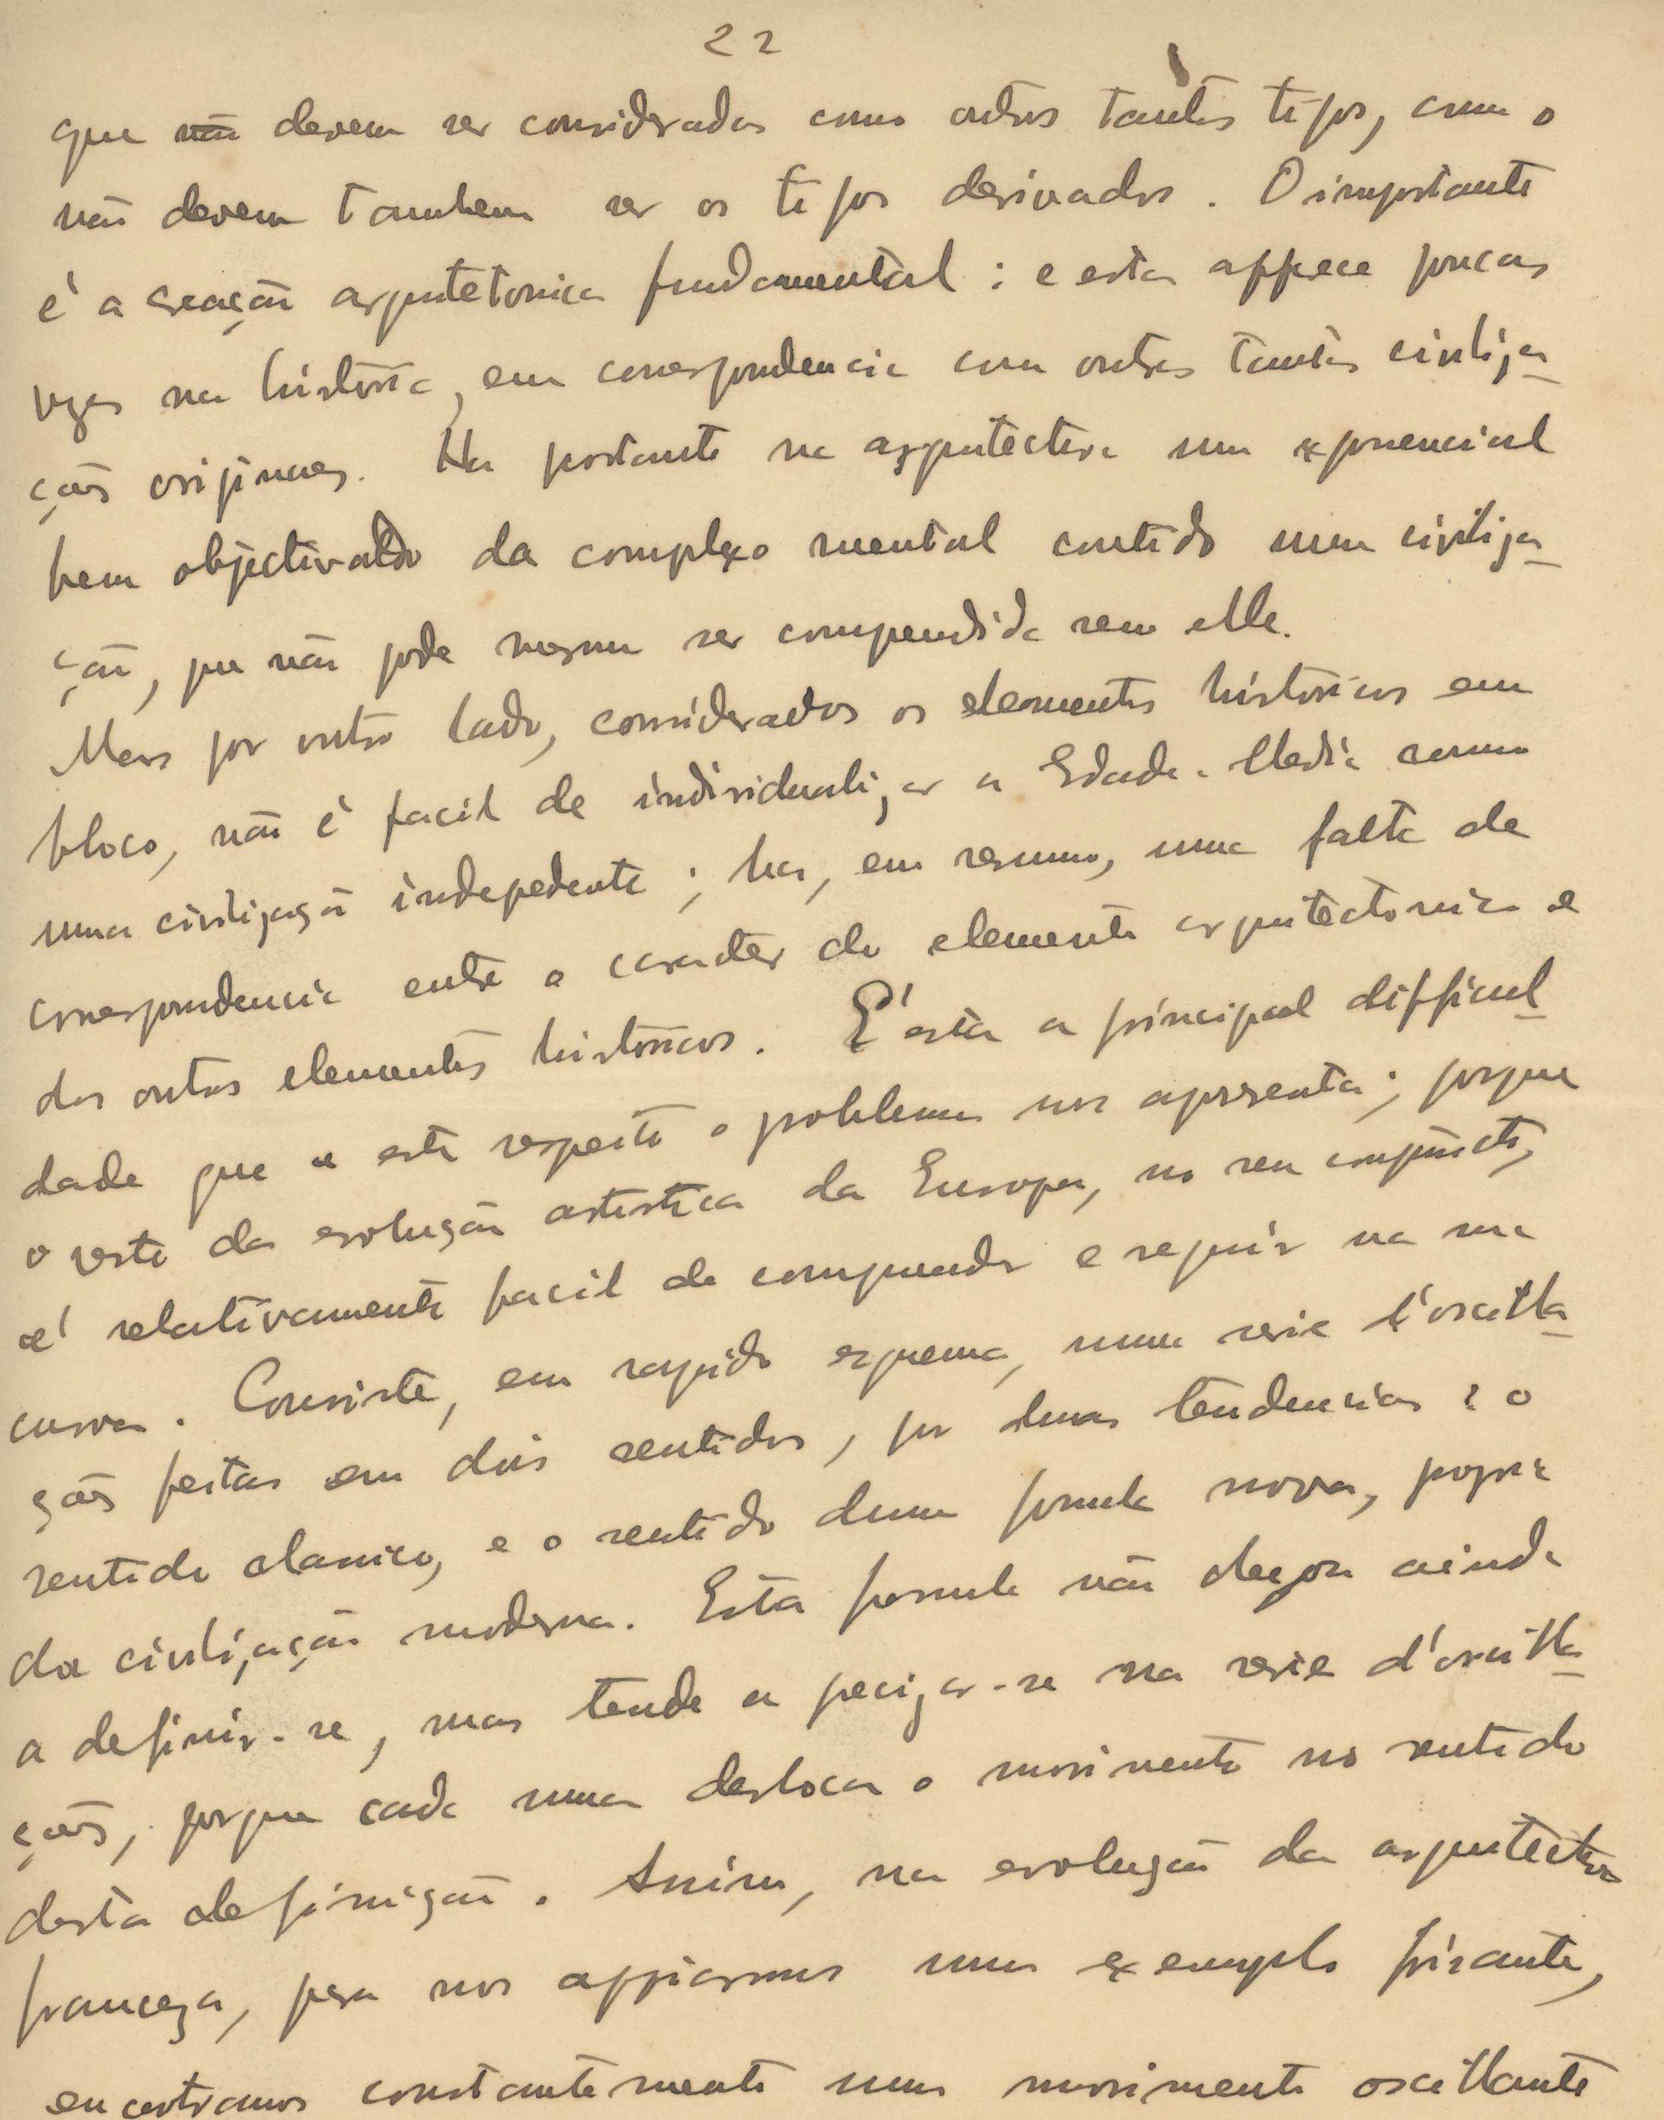 22
que não devem ser considerados como outros tantos tipos, como o
não devem tambem ser os tipos derivados. O importante
é a creação arquitetonica fundamental: e esta apprece poucas
vezes na historia, em correspondencia com outras tantas civiliza-
ções originaes. Ha portanto na arquitectura um exponencial
bem objectivado da complexo mental contido numa civiliza-
ção, que não pode mesmo ser comprendida sem elle.
Mas por outro lado, considerados os elementos historicos em
bloco, não é facil de individualizar a Edade-Media como
uma civilização indepedente; ha, em resumo, uma falta de
correspondencia entre o caracter do elemento arquitectonico e
dos outros elementos historicos. É esta a principal difficul-
dade que a este respeito o problema nos apresenta; porque
o resto da evolução artistica da Europa, no seu conjuncto,
é relativamente facil de comprender e seguir na sua
curva. Consiste, em rapido esquema, numa serie d'oscilla-
ções feitas em dois sentidos, por duas tendencias: o
sentido classico, e o sentido duma formula nova, propria
da civilização moderna. Esta formula não chegou ainda
a definir-se, mas tende a precizar-se na serie d'oscilla-
ções, porque cada uma desloca o movimento no sentido
desta definição. Assim, na evolução da arquitectura
franceza, para nos appoiarmos num exemplo frizante,
encontramos constantemente um movimento oscillante